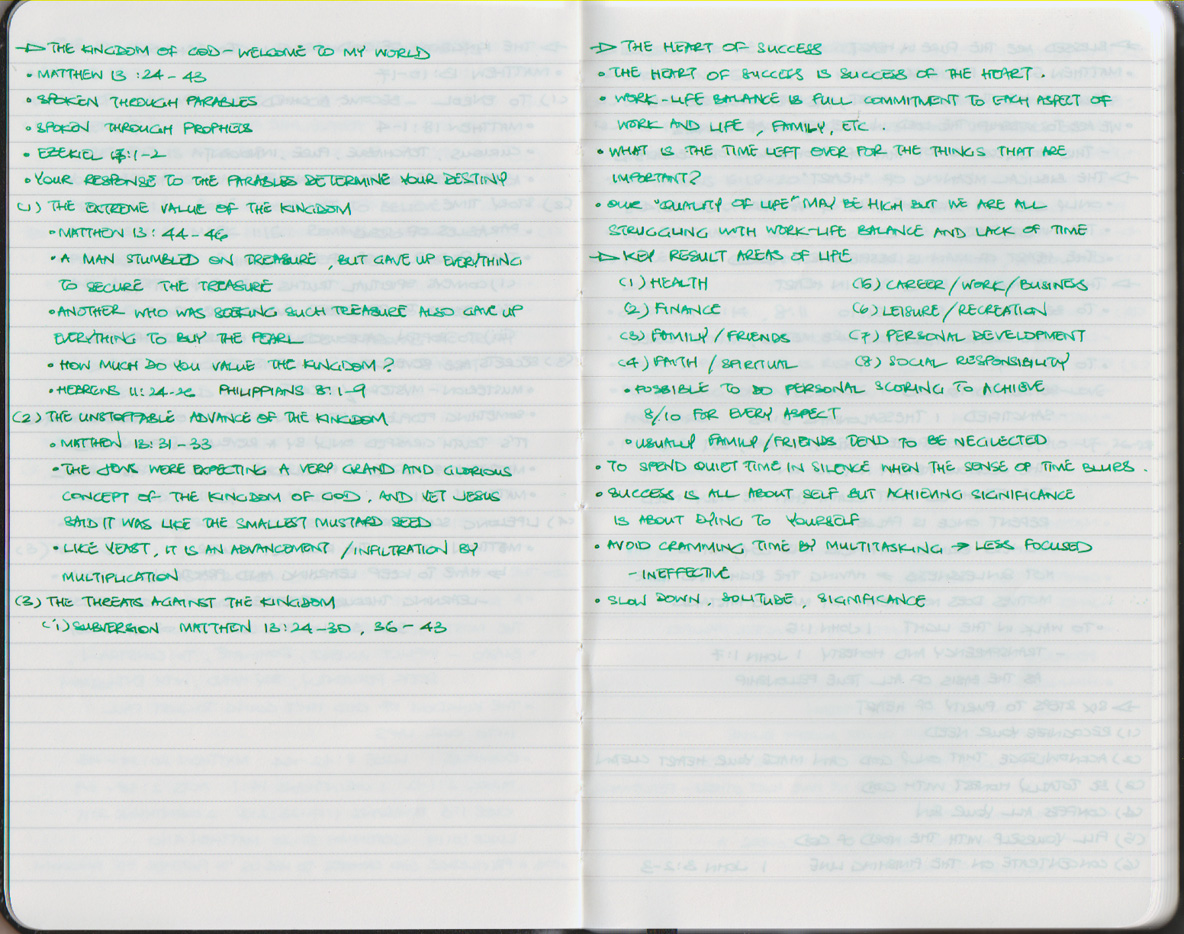 → THE KINGDOM OF GOD - WELCOME TO MY WORLD
• MATTHEW 13:24-43
• SPOKEN THROUGH PARABLES
• SPOKEN THROUGH PROPHETS
• EZEKIEL :1-2
• YOUR RESPONSE TO THE PARABLES DETERMINE YOUR DESTINY
(1) THE EXTREME VALUE OF THE KINGDOM
• MATTHEW 13:44-46
• A MAN STUMBLED ON TREASURE, BUT GAVE UP EVERYTHING
TO SECURE THE TREASURE
• ANOTHER WHO WAS SEEKING SUCH TREASURE ALSO GAVE UP
EVERYTHING TO BUY THE PEARL
• HOW MUCH DO YOU VALUE THE KINGDOM?
• HEBREWS 11:24-26 PHILIPPIANS 3:1-9
(2) THE UNSTOPPABLE ADVANCE OF THE KINGDOM
• MATTHEW 13:31-33
• THE JEWS WERE EXPECTING A VERY GRAND AND GLORIOUS
CONCEPT OF THE KINGDOM OF GOD, AND YET JESUS
SAID IT WAS LIKE THE SMALLEST MUSTARD SEED
• LIKE YEAST, IT IS AN ADVANCEMENT / INFILTRATION BY
MULTIPLICATION
(3) THE THREATS AGAINST THE KINGDOM
(i) SUBVERSION MATTHEW 13:24-30, 36-43
→ THE HEART OF SUCCESS
• THE HEART OF SUCCESS IS SUCCESS OF THE HEART.
• WORK-LIFE BALANCE IS FULL COMMITMENT TO EACH ASPECT OF
WORK AND LIFE, FAMILY, ETC.
• WHAT IS THE TIME LEFT OVER FOR THE THINGS THAT ARE
IMPORTANT?
• OUR "QUALITY OF LIFE" MAY BE HIGH BUT WE ARE ALL
STRUGGLING WITH WORK-LIFE BALANCE AND LACK OF TIME
→ KEY RESULT AREAS OF LIFE
(1) HEALTH (5) CAREER/WORK/BUSINESS
(2) FINANCE (6) LEISURE/RECREATION
(3) FAMILY/FRIENDS (7) PERSONAL DEVELOPMENT
(4) FAITH/SPIRITUAL (8) SOCIAL RESPONSIBILITY
• POSSIBLE TO DO PERSONAL SCORING TO ACHIEVE
8/10 FOR EVERY ASPECT
• USUALLY FAMILY/FRIENDS TEND TO BE NEGLECTED
• TO SPEND QUIET TIME IN SILENCE WHEN THE SENSE OF TIME BLURS.
• SUCCESS IS ALL ABOUT SELF BUT ACHIEVING SIGNIFICANCE
IS ABOUT DYING TO YOURSELF
• AVOID CRAMMING TIME BY MULTITASKING → LESS FOCUSED
- INEFFECTIVE
• SLOW DOWN, SOLITUDE, SIGNIFICANCE